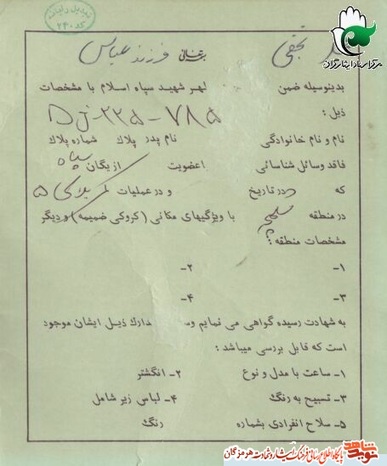 تبدیل رایانه
کد ۲۴۰
مرکز اسناد ایثارگران
نجفی فرزند عباس
بدینوسیله ضمن لهر شهید سپاه اسلام با مشخصات
ذیل :
۷۸۵-۲۲۵-
نام و نام خانوادگی نام پدر پلاک شماره پلاک
فاقد وسائل شناسائی اعضویت از یگان سپاه
که در تاریخ و در عملیات کربلای ۵
در منطقه شلمچه با ویژگیهای مکانی (کروکی ضمیمه) و دیگر
مشخصات منطقه :
۱- ۲-
۳- ۴-
به شهادت رسیده گواهی می نمایم و مدارک ذیل ایشان موجود
است که قابل بررسی میباشد :
۱- ساعت با مدل و نوع ۲- انگشتر
۳- تسبیح به رنگ ۴- لباس زیر شامل
۵- سلاح انفرادی بشماره رنگ
نوید شاهد پایگاه اطلاع رسانی فرهنگ ایثار و شهادت هرمزگان